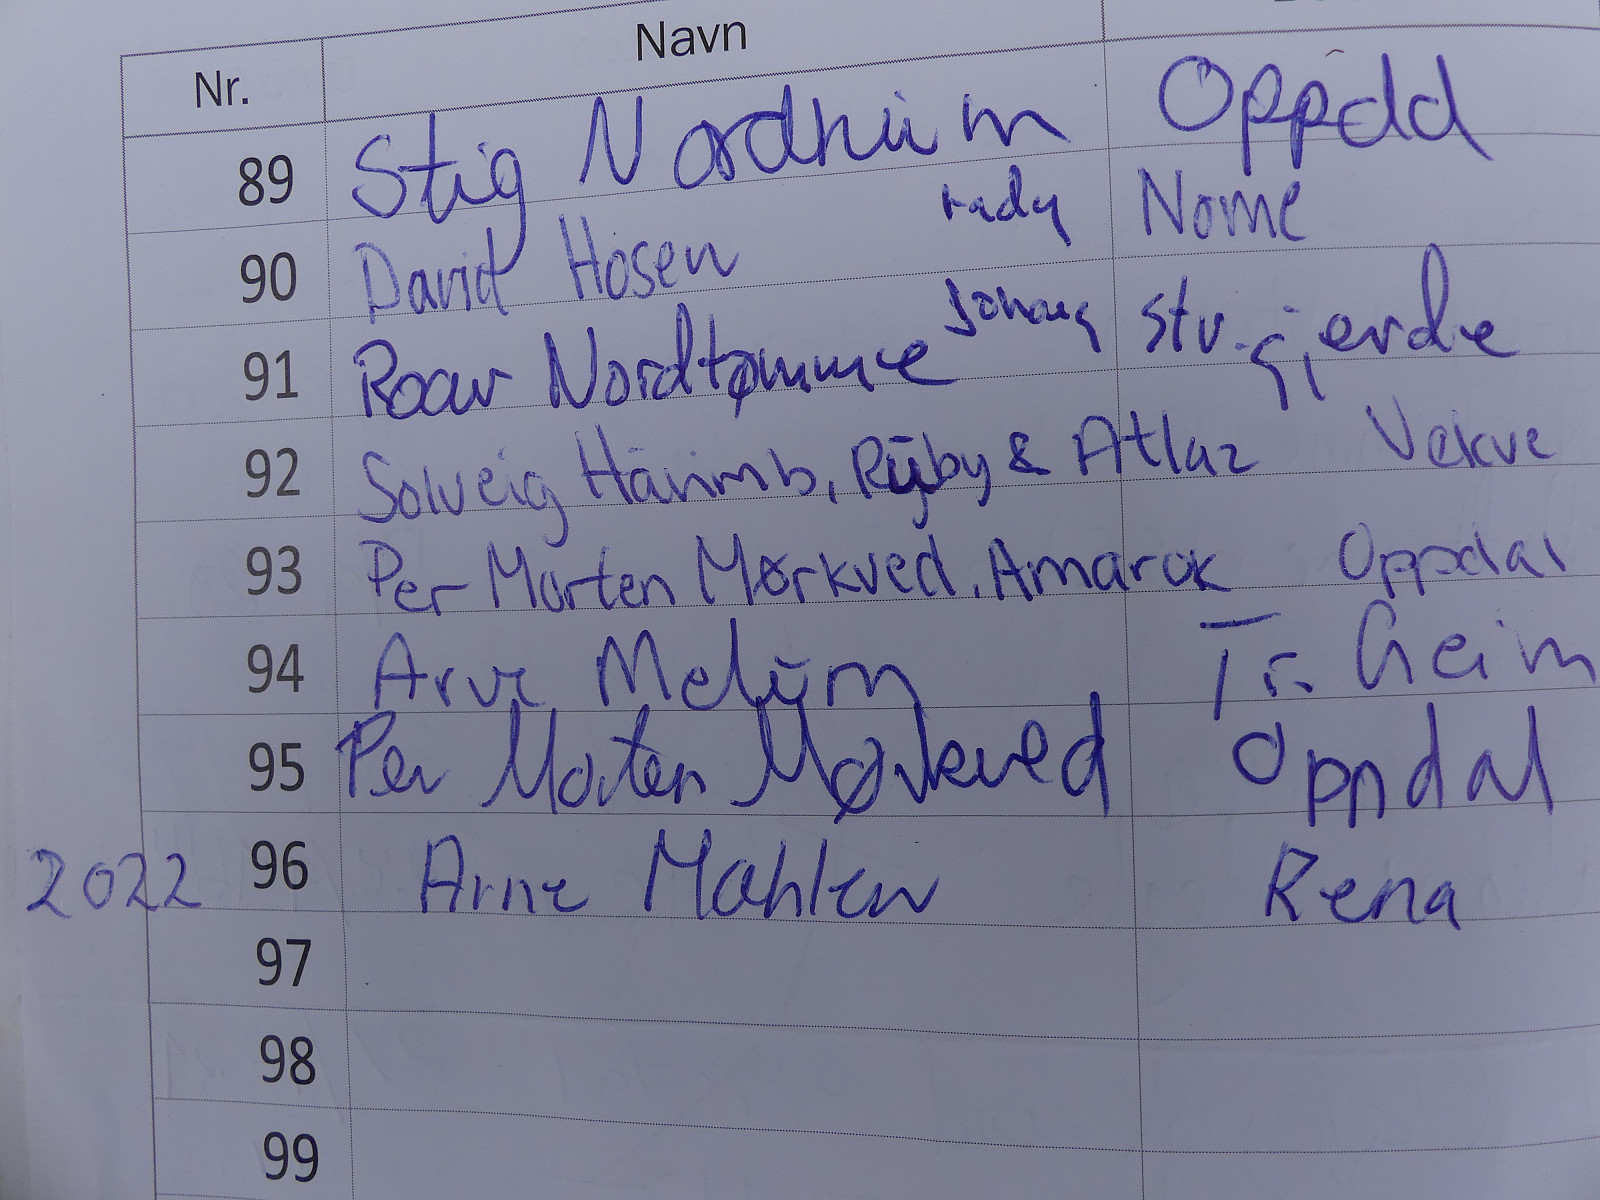 Nr. Navn
89 Stig Nordhüim Oppdal
90 David Hosen Nome
91 Roar Nordtømme str.gjerde
92 Solveig Håvimb, Ruby & Atlaz Vekve
93 Per Morten Mørkved. Amarok Oppdal
94 Arve Melum Tr. heim
95 Per Morten Mørkved Oppdal
2022 96 Arne Mahlen Rena
97
98
99